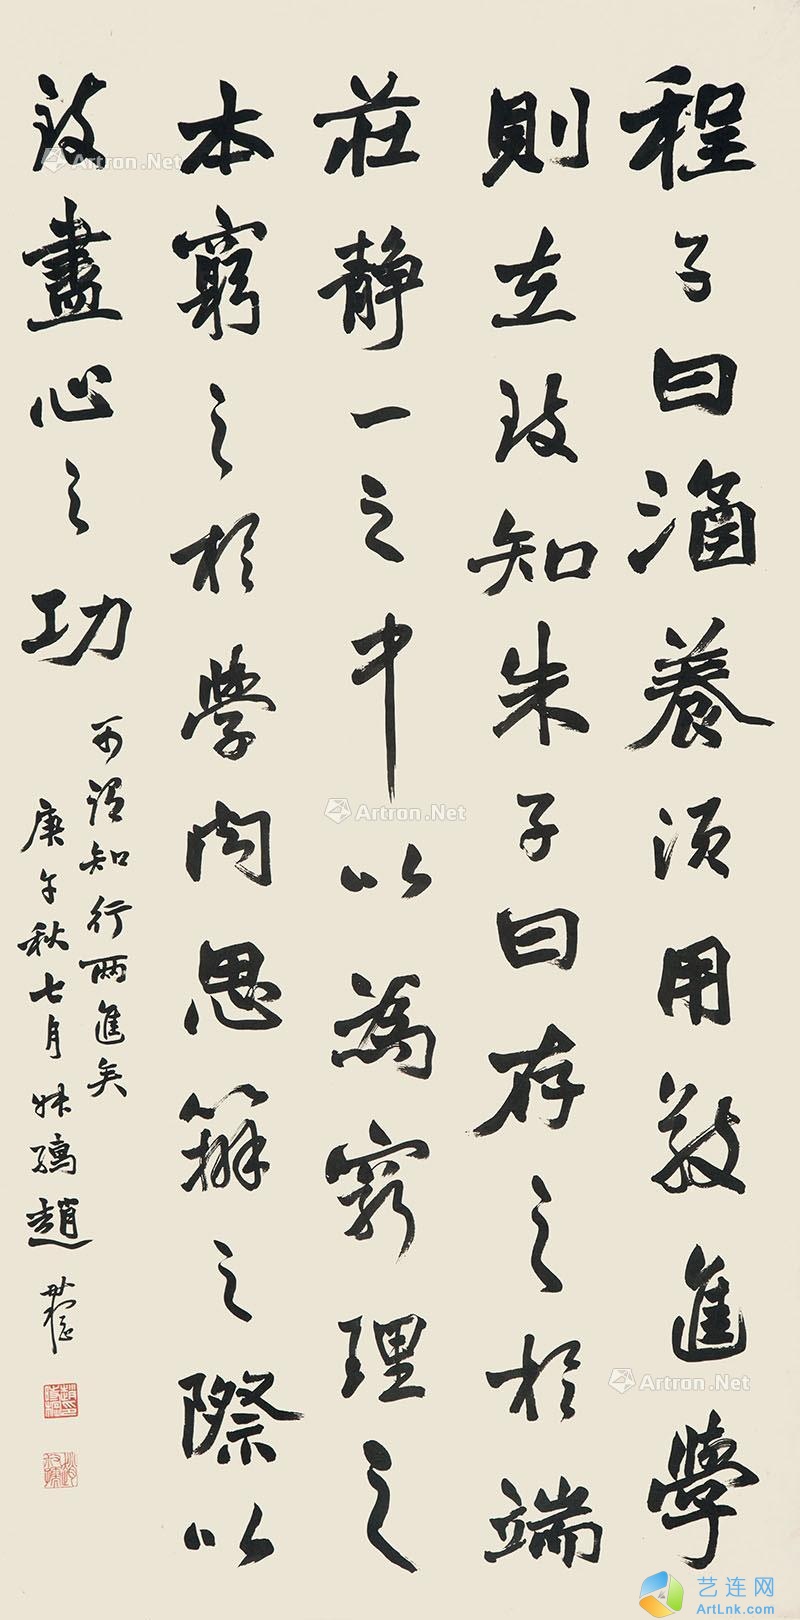 程子曰涵養須用敬進學
則在致知朱子曰存之於端
莊静一之中以為窮理之
本窮之於學問思辨之際以
致盡心之功
可謂知行兩進矣
庚午秋七月 趙
Artron.Net
Artron.Net
Artron.Net
艺连网
ArtLnk.com